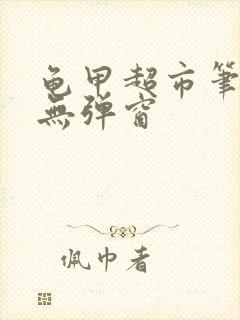 龟甲超市筆
無彈窗
佩巾者